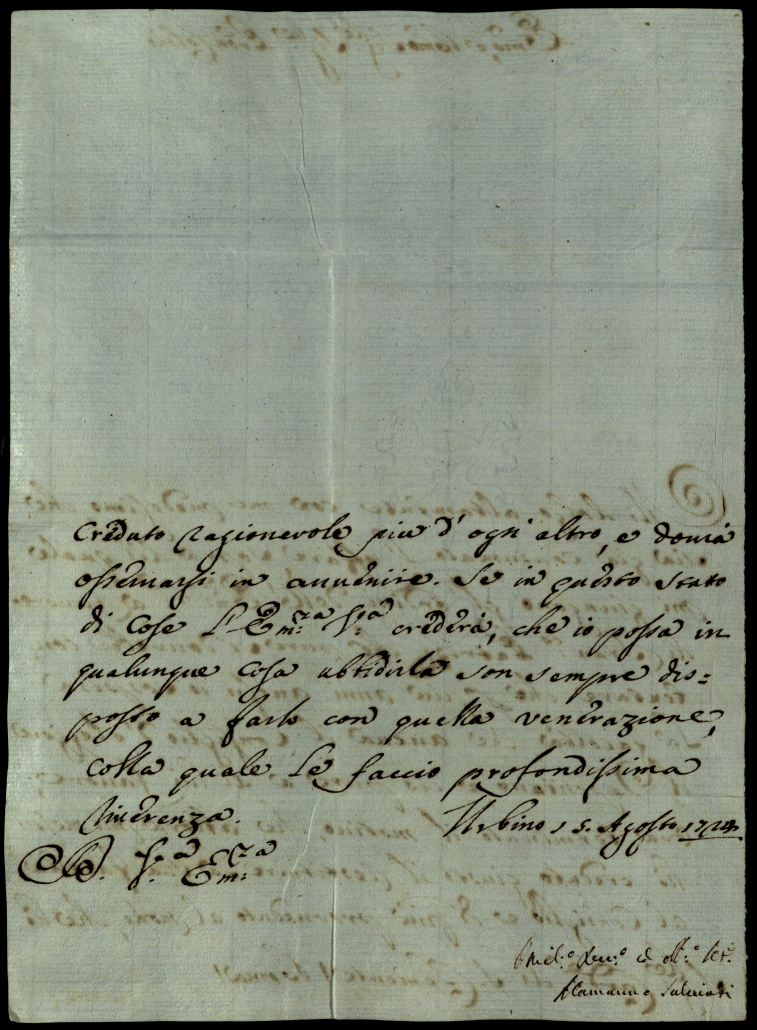 creduto ragionevole piu d' ogni altro, e dovrà
osservarsi in avvenire. Se in questo stato
di Cose l'Em:za V:a crederà, che io possa in
qualunque cosa ubbidirla son sempre dis=
posto a farlo con quella venerazione,
colla quale le faccio profondissima
riverenza.
Urbino 15. Agosto
D. V:a Em:za
Umil:o Dev:o ed Obb:o Ser:e
Alamanno Salviati